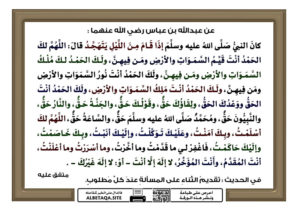 عن عبدالله بن عباس رضي الله عنهما :
كانَ النبيُّ صَلَّى اللهُ عليه وسلَّمَ إذَا قَامَ مِنَ اللَّيْلِ يَتَهَجَّدُ قالَ: اللَّهُمَّ لكَ
الحَمْدُ أنْتَ قَيِّمُ السَّمَوَاتِ والأرْضِ ومَن فِيهِنَّ، ولَكَ الحَمْدُ لكَ مُلْكُ
السَّمَوَاتِ والأرْضِ ومَن فِيهِنَّ، ولَكَ الحَمْدُ أنْتَ نُورُ السَّمَوَاتِ والأرْضِ
ومَن فِيهِنَّ، ولَكَ الحَمْدُ أنْتَ مَلِكُ السَّمَوَاتِ والأرْضِ، ولَكَ الحَمْدُ أنْتَ
الحَقُّ ووَعْدُكَ الحَقُّ، ولِقَاؤُكَ حَقٌّ، وقَوْلُكَ حَقٌّ، والجَنَّةُ حَقٌّ، والنَّارُ حَقٌّ،
والنَّبِيُّونَ حَقٌّ، ومُحَمَّدٌ صَلَّى اللهُ عليه وسلَّمَ حَقٌّ، والسَّاعَةُ حَقٌّ، اللَّهُمَّ لكَ
أسْلَمْتُ، وبِكَ آمَنْتُ، وعَلَيْكَ تَوَكَّلْتُ، وإلَيْكَ أنَبْتُ، وبِكَ خَاصَمْتُ،
وإلَيْكَ حَاكَمْتُ، فَاغْفِرْ لي ما قَدَّمْتُ وما أخَّرْتُ، وما أسْرَرْتُ وما أعْلَنْتُ،
أنْتَ المُقَدِّمُ، وأَنْتَ المُؤَخِّرُ، لا إلَهَ إلَّا أنْتَ - أوْ: لا إلَهَ غَيْرُكَ - .
متفق عليه
في الحديث : تقديم الثناء على المسألة عند كل مطلوب.
ALBETAQA.SITE